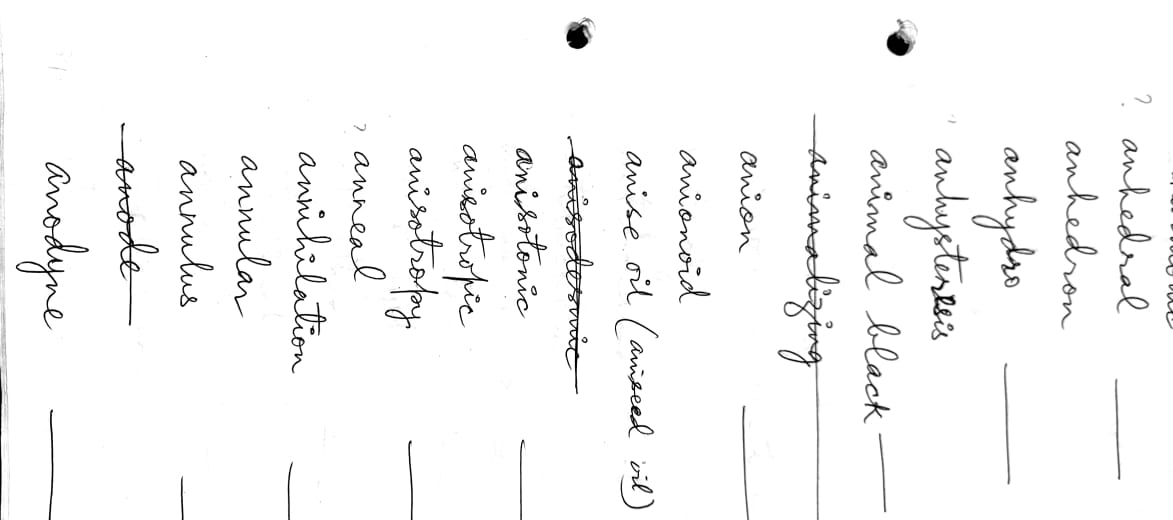 ? anhedral
anhedron
anhydro
anhysteresis
animal black
animalizing
anion
anionoid
anise oil (aniseed oil)
anisodesmic
anisotonic
anisotropic
anisotropy
? anneal
annihilation
annular
annulus
anode
anodyne